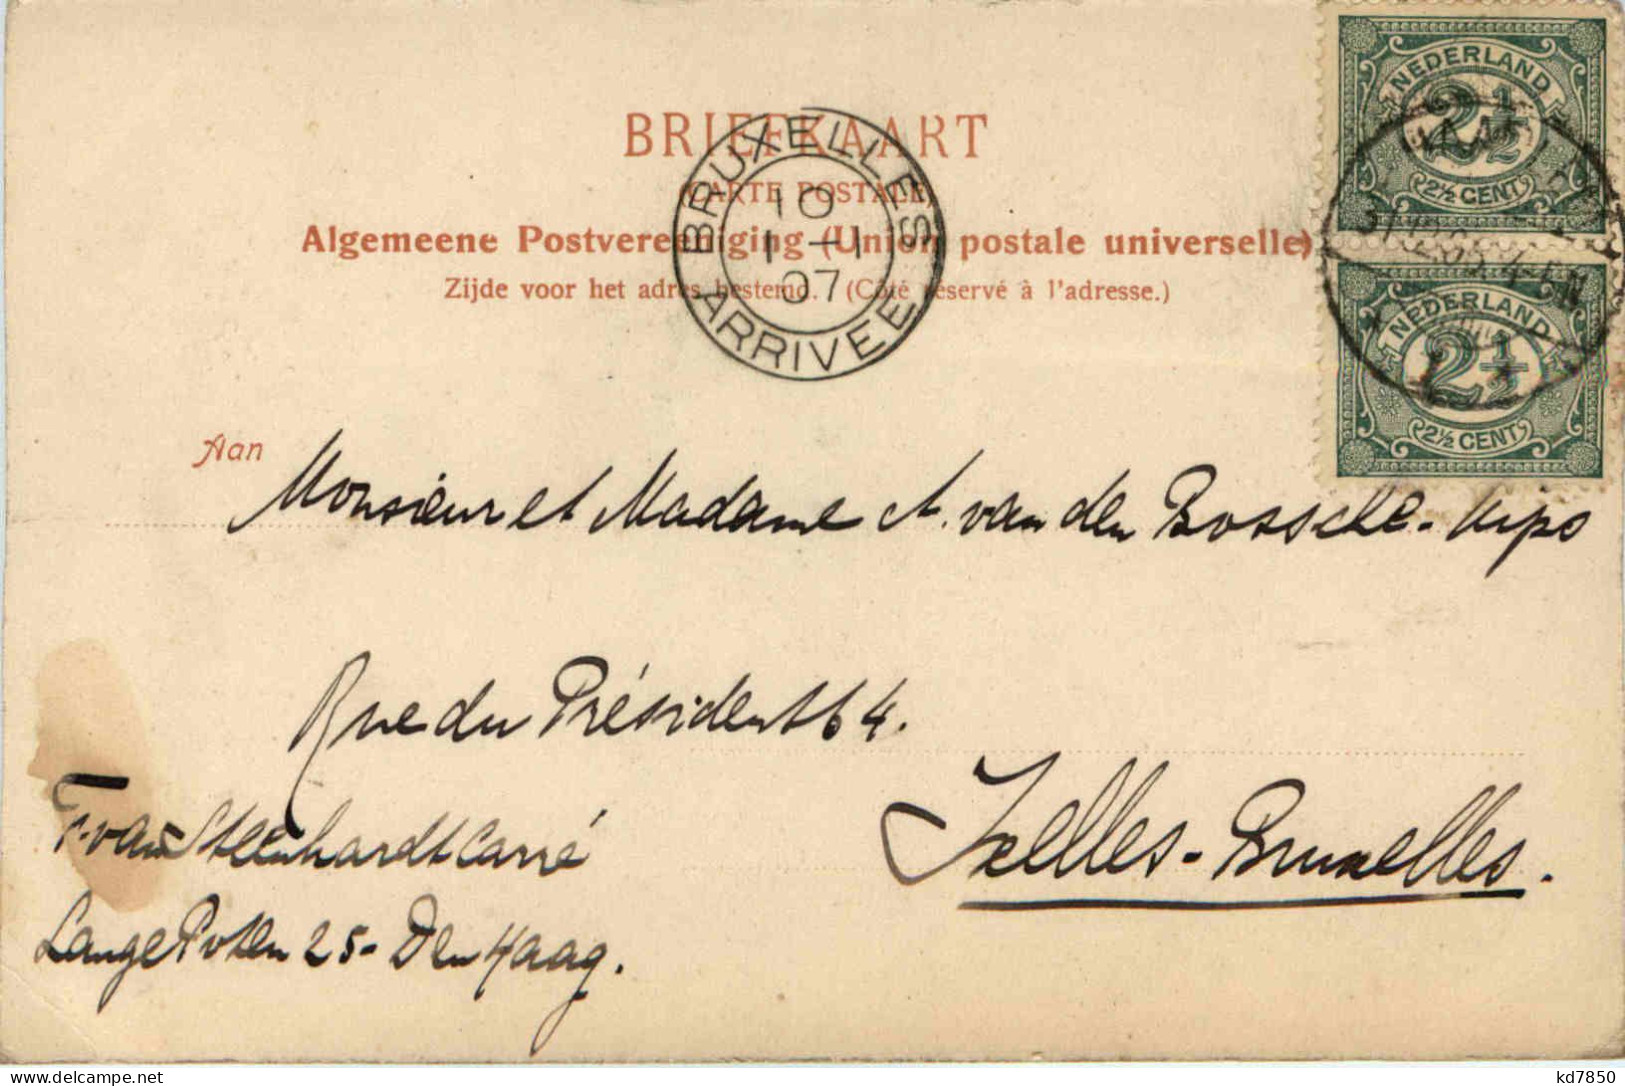 BRIEFKAART
(CARTE POSTALE)
Algemeene Postvereeniging (Union postale universelle)
Zijde voor het adres bestemd. (Côté réservé à l'adresse.)
BRUXELLES
10
1-1
07
ARRIVEE
NEDERLAND
2½
2½ CENT
NEDERLAND
2½
2½ CENT
4-5N
Aan
Monsieur et Madame A. van den Bossche-
Rue du Président 64.
Ixelles-Bruxelles.
F. van Steenhardt Carré
Lange Poten 25- Den Haag.
kd7850